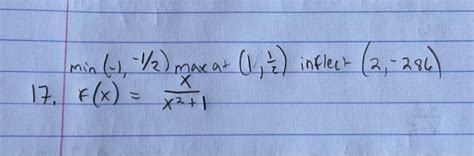 min (-1, -1/2) max at (1, 1/2) inflect (2, -286)
17. F(x) = x/x²+1